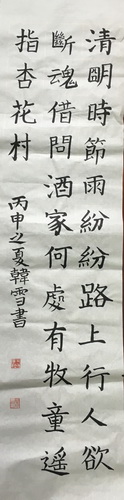 清明時節雨紛紛路上行人欲
斷魂借問酒家何處有牧童遥
指杏花村
丙申之夏韓雪書